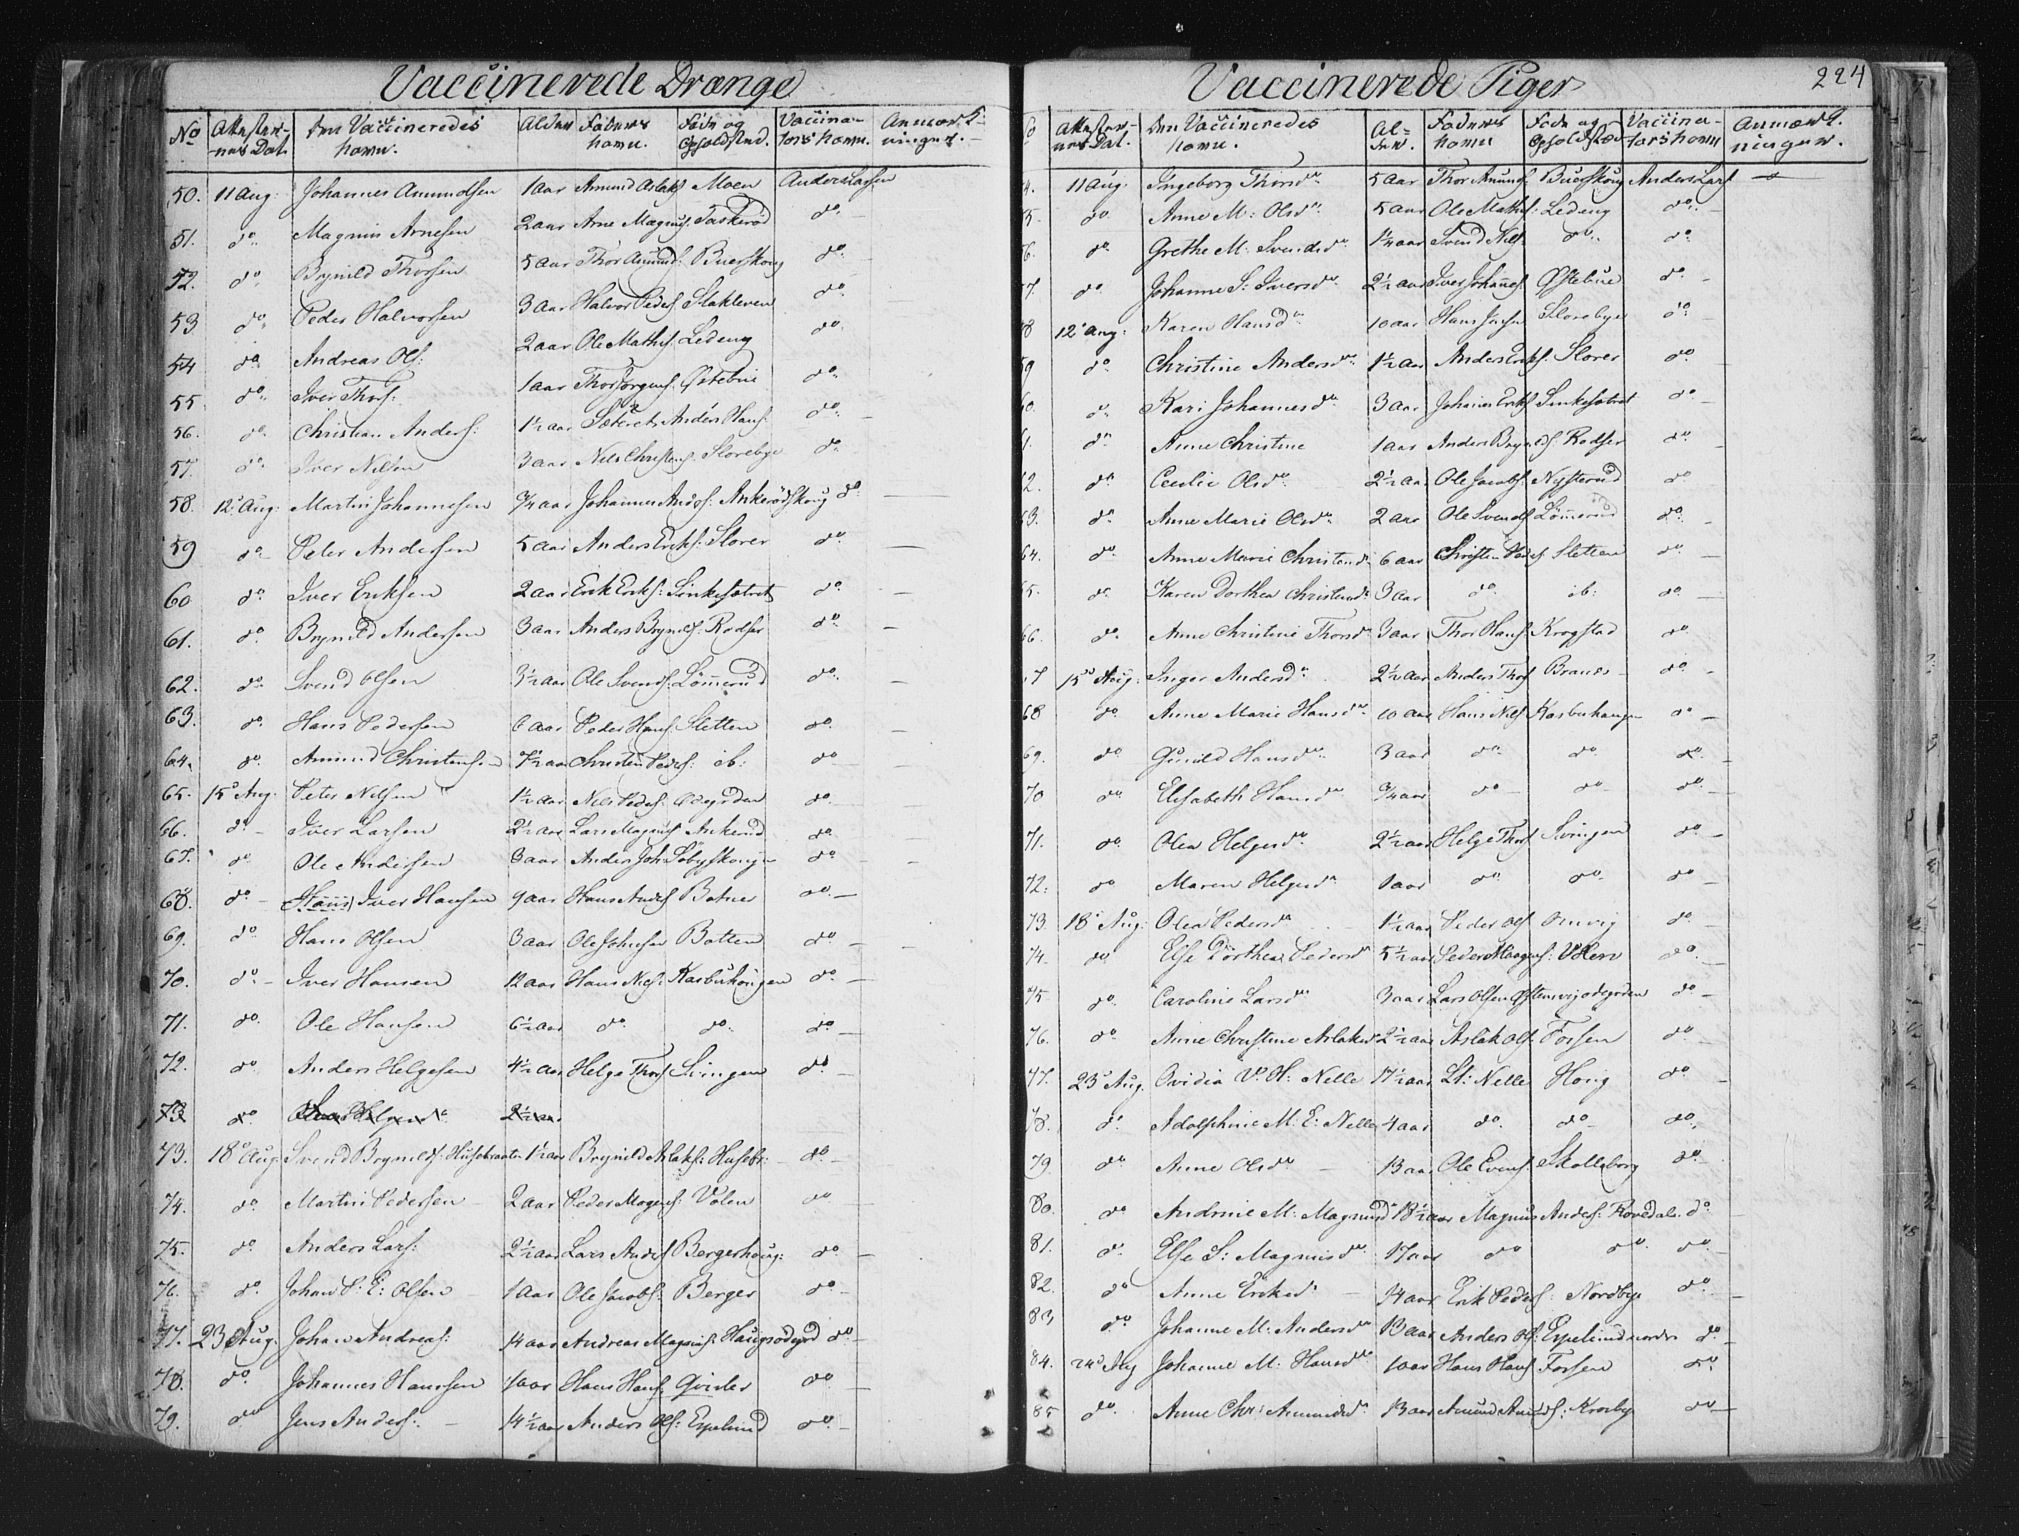 Vaccinerede Drænge
No Attester- nes Dat. Den Vaccineredes Navn. Alder Faders Navn. Føde og Opholdsted. Vaccina- tors Navn. Anmærk- ninger.
50. 11 Aug. Johannes Amundsen 1 aar Amund Aslaks. Moen Anders Larsen
51. do. Magnus Arnesen 2 aar Arne Magnus. Taskerød do. —
52. do. Brynild Thorsen 5 aar Thor Amunds. Buerskoug do. —
53 do. Peder Halvorsen 3 aar Halvor Peders. Slakleven do.
54 do. Andreas Ols: 2 aar Ole Mathis. Ledeng do.
55. do. Iver Thors: 1 aar Thor Jørgens. Østebue do. —
56. do. Christian Anders: 1½ aar Sæteret Anders Hans: do. —
57. do. Iver Nilsen 3 aar Nels Christens. Slorebye do.
58. 12 Aug: Martin Johannesen ¾ aar Johannes Anders. Ankerødskoug do. —
59 do. Peter Andersen 5 aar Anders Eriks. Slorer do. —
60 do. Iver Eriksen 2 aar Erik Eriks: Sinkesætret do. —
61. do. Brynild Andersen 3 aar Anders Brynilds. Rodser do. —
62. do. Svend Olsen 3½ aar Ole Svends. Lömerud do. —
63. do. Hans Pedersen 6 aar Peder Hans. Sletten do. —
64. do. Amund Christens. 7½ aar Christen Peders: ib: do —
65. 15 Aug. Peter Nilsen 1½ aar Nils Peders. Ødegrden do. —
66. do — Iver Larsen 2½ aar Lars Magnus. Ankerud do. —
67. do. Ole Andersen 3 aar Anders Joh. Söbyskougen do. —
68. do. — Hans Iver Hansen 9 aar Hans Anders. Botner do. —
69. do. Hans Olsen 3 aar Ole Johnsen Botten do. —
70. do. — Iver Hansen 12 aar Hans Nils: Kasbuhougen do. —
71. do. Ole Hansen 6½ aar do. do. do. —
72. do. Anders Helgesen 4½ aar Helge Thors. Svingen do. —
73 do. Olea Helgesda 2½ aar
73. 18 Aug. Svend Brynilds. Husebraaten 1½ aar Brynild Aslaks: Husebr: do. —
74. do. Martin Pedersen 2 aar Peder Magens: Volen do —
75. do. Anders Lars: 2½ aar Lars Anders. Bergerhoug: do. —
76. do. Johan P. E: Olsen 1 aar Ole Jacobs: Berger do. —
77. 23 Aug. Johan Andreas: 14 aar Andreas Magnus. Haugsødegrd do. —
78. do. Johannes Hanssen 1 aar Hans Hans. Qvisler do. —
79. do. Jens Anders: — 14½ aar Anders Ols: Espelund do. —
Vaccinerede Piger
224
No Attester- nes Dat. Den Vaccineredes Navn. Al- der. Faders Navn Føde og Opholdsted Vaccina- tors Navn Anmærk- ninger.
4. 11 Aug. Ingeborg Thorsda. 5 aar Thor Amunds. Buerskoug Anders Lars. —
5. do Anne M: Olsda. 5 aar Ole Mathis: Ledeng do. —
6. do Grethe M. Svendsda 1¼ aar Svend Nils. do. do. —
7. do Johanne S. Iversda. 2½ aar Iver Johanes. Østebue do. —
8 12 Aug: Karen Hansda. 10 aar Hans Jens. Slorebye do.
59 do. Christine Andersda. 1½ aar Anders Eriks. Slorer do.
60. do. Kari Johannesda. 3 aar Johanes Eriks. Sinkesætret do. —
61. do. Anne Christine 1 aar Anders Brynilds. Rodser do. —
62. do. Cecilie Olsda. 2½ aar Ole Jacobs. Nysterud do
63. do. Anne Marie Olsda. 2 aar Ole Svends. Lömerud do. —
64. do. Anne Marie Christensda. 6 aar Christen Peders. Sletten do. —
65. do. Karen Dorthea Christensda 3 aar do. ib: do. —
66. do. Anne Christine Thorsda. 3 aar Thor Hans. Krogstad do.
67 15 Aug. Inger Andersda. 2½ aar Anders Thors. Branes do. —
68 do. Anne Marie Hansda. 10 aar Hans Nils. Kasbuhaugen do —
69. do. Gunild Hansda. 3 aar do. do. do. —
70 do. Elisabeth Hansda ¾ aar do — do. do. —
71. do. Olea Helgesda 2½ aar Helge Thors. Svingen do. —
72. do Maren Helgesda 1 aar do. do. do. —
73. 18 Aug: Olea Pedersda 1½ aar Peder Ols. Omvig do —
74. do. Else Dorthea Pedersda 5½ aar Peder Magens: Volen do. —
75 do. Caroline Larsda 3 aar Lars Olsen Østensvigødegrden do. —
76. do. Anne Christine Aslaksda 2½ aar Aslak Ols. Fossen do. —
77. 23 Aug. Ovidia V. H: Nelle 17½ aar Lt: Nelle Honig do. —
78. do. Adolphine M. E: Nelle 4 aar do. do. — do.
79 do. Anne Olsda — 13 aar Ole Evens. Skolleborg do. —
80. do. Andrine M. Magnusda 18½ aar Magnus Anders: Rovedal. do.
81. do. Else S: Magnusda 17 aar do do. do. —
82. do Anne Eriksda — 14 aar Erik Peders. Nordbye do. —
83, do. Johanne M: Andersda 13 aar Anders Ols. Espelund nordr. do. —
84. 24 Aug Johanne M: Hansda 10 aar Hans Hans. Fossen do.
85 do. Anne Chr: Amundsda. 13 aar Amund Amunds.: Krosbye do. —